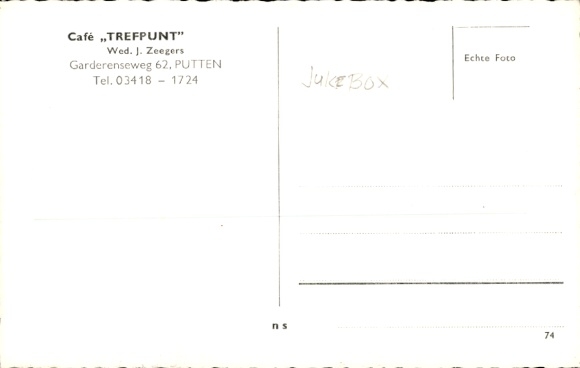 Café „TREFPUNT”
Wed. J. Zeegers
Garderenseweg 62, PUTTEN
Tel. 03418 – 1724
JUKEBOX
Echte Foto
n s
74